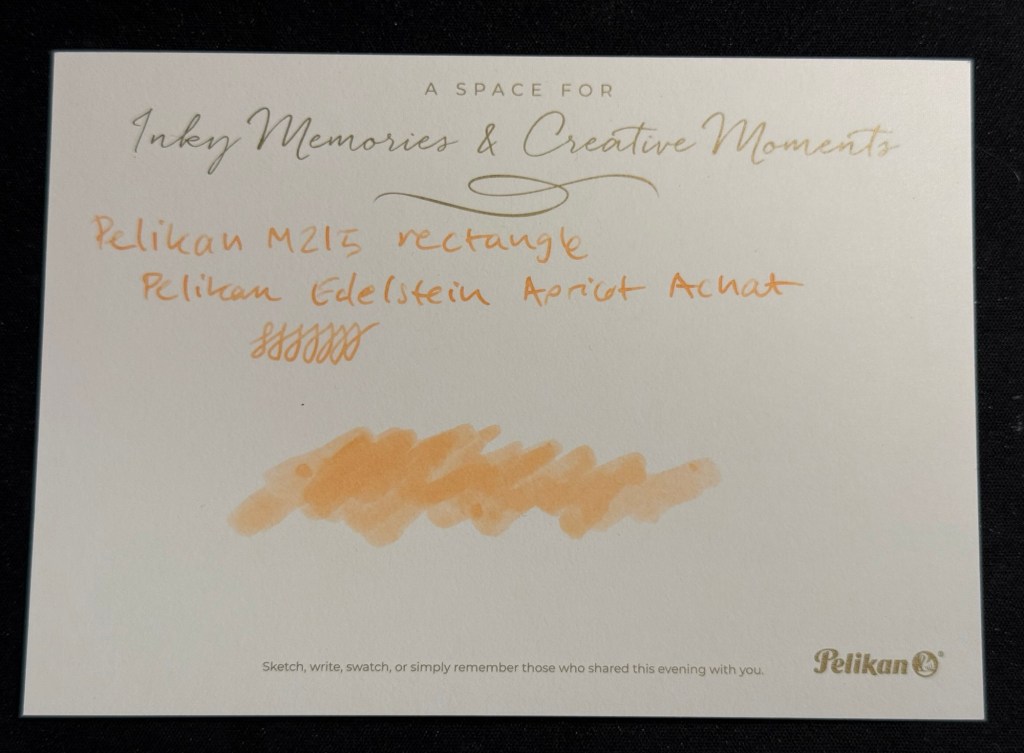 A SPACE FOR
Inky Memories & Creative Moments
Pelikan M215 rectangle
Pelikan Edelstein Apricot Achat
Sketch, write, swatch, or simply remember those who shared this evening with you.
Pelikan